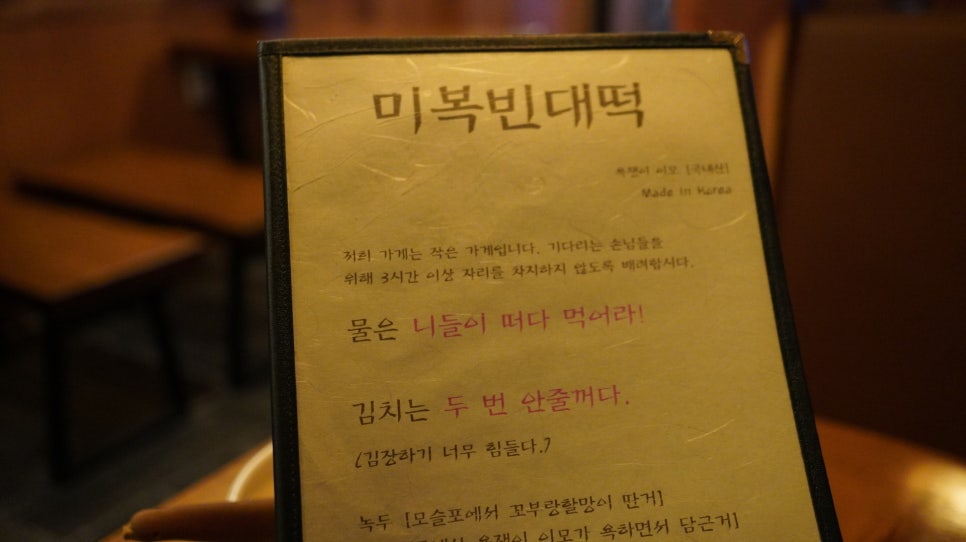 미복빈대떡
욕쟁이 이모 [국내산]
Made in Korea
저희 가게는 작은 가게입니다. 기다리는 손님들을
위해 3시간 이상 자리를 차지하지 않도록 배려합시다.
물은 니들이 떠다 먹어라!
김치는 두 번 안줄꺼다.
(김장하기 너무 힘들다.)
녹두 [모슬포에서 꼬부랑할망이 딴거]
욕쟁이 이모가 욕하면서 담근거]